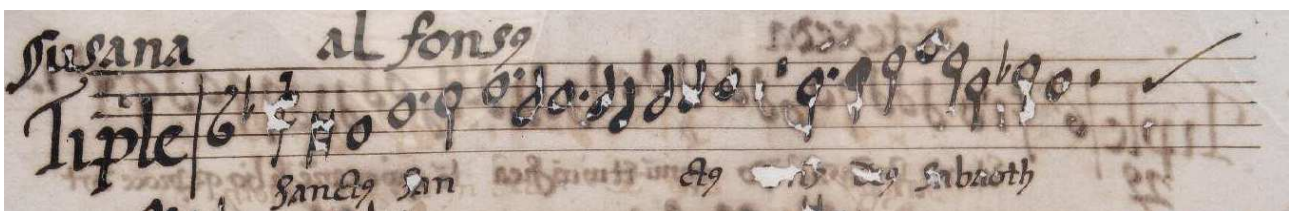 Susana al fonsꝰ
Tiple
Sanctꝰ San ctꝰ Sabaoth